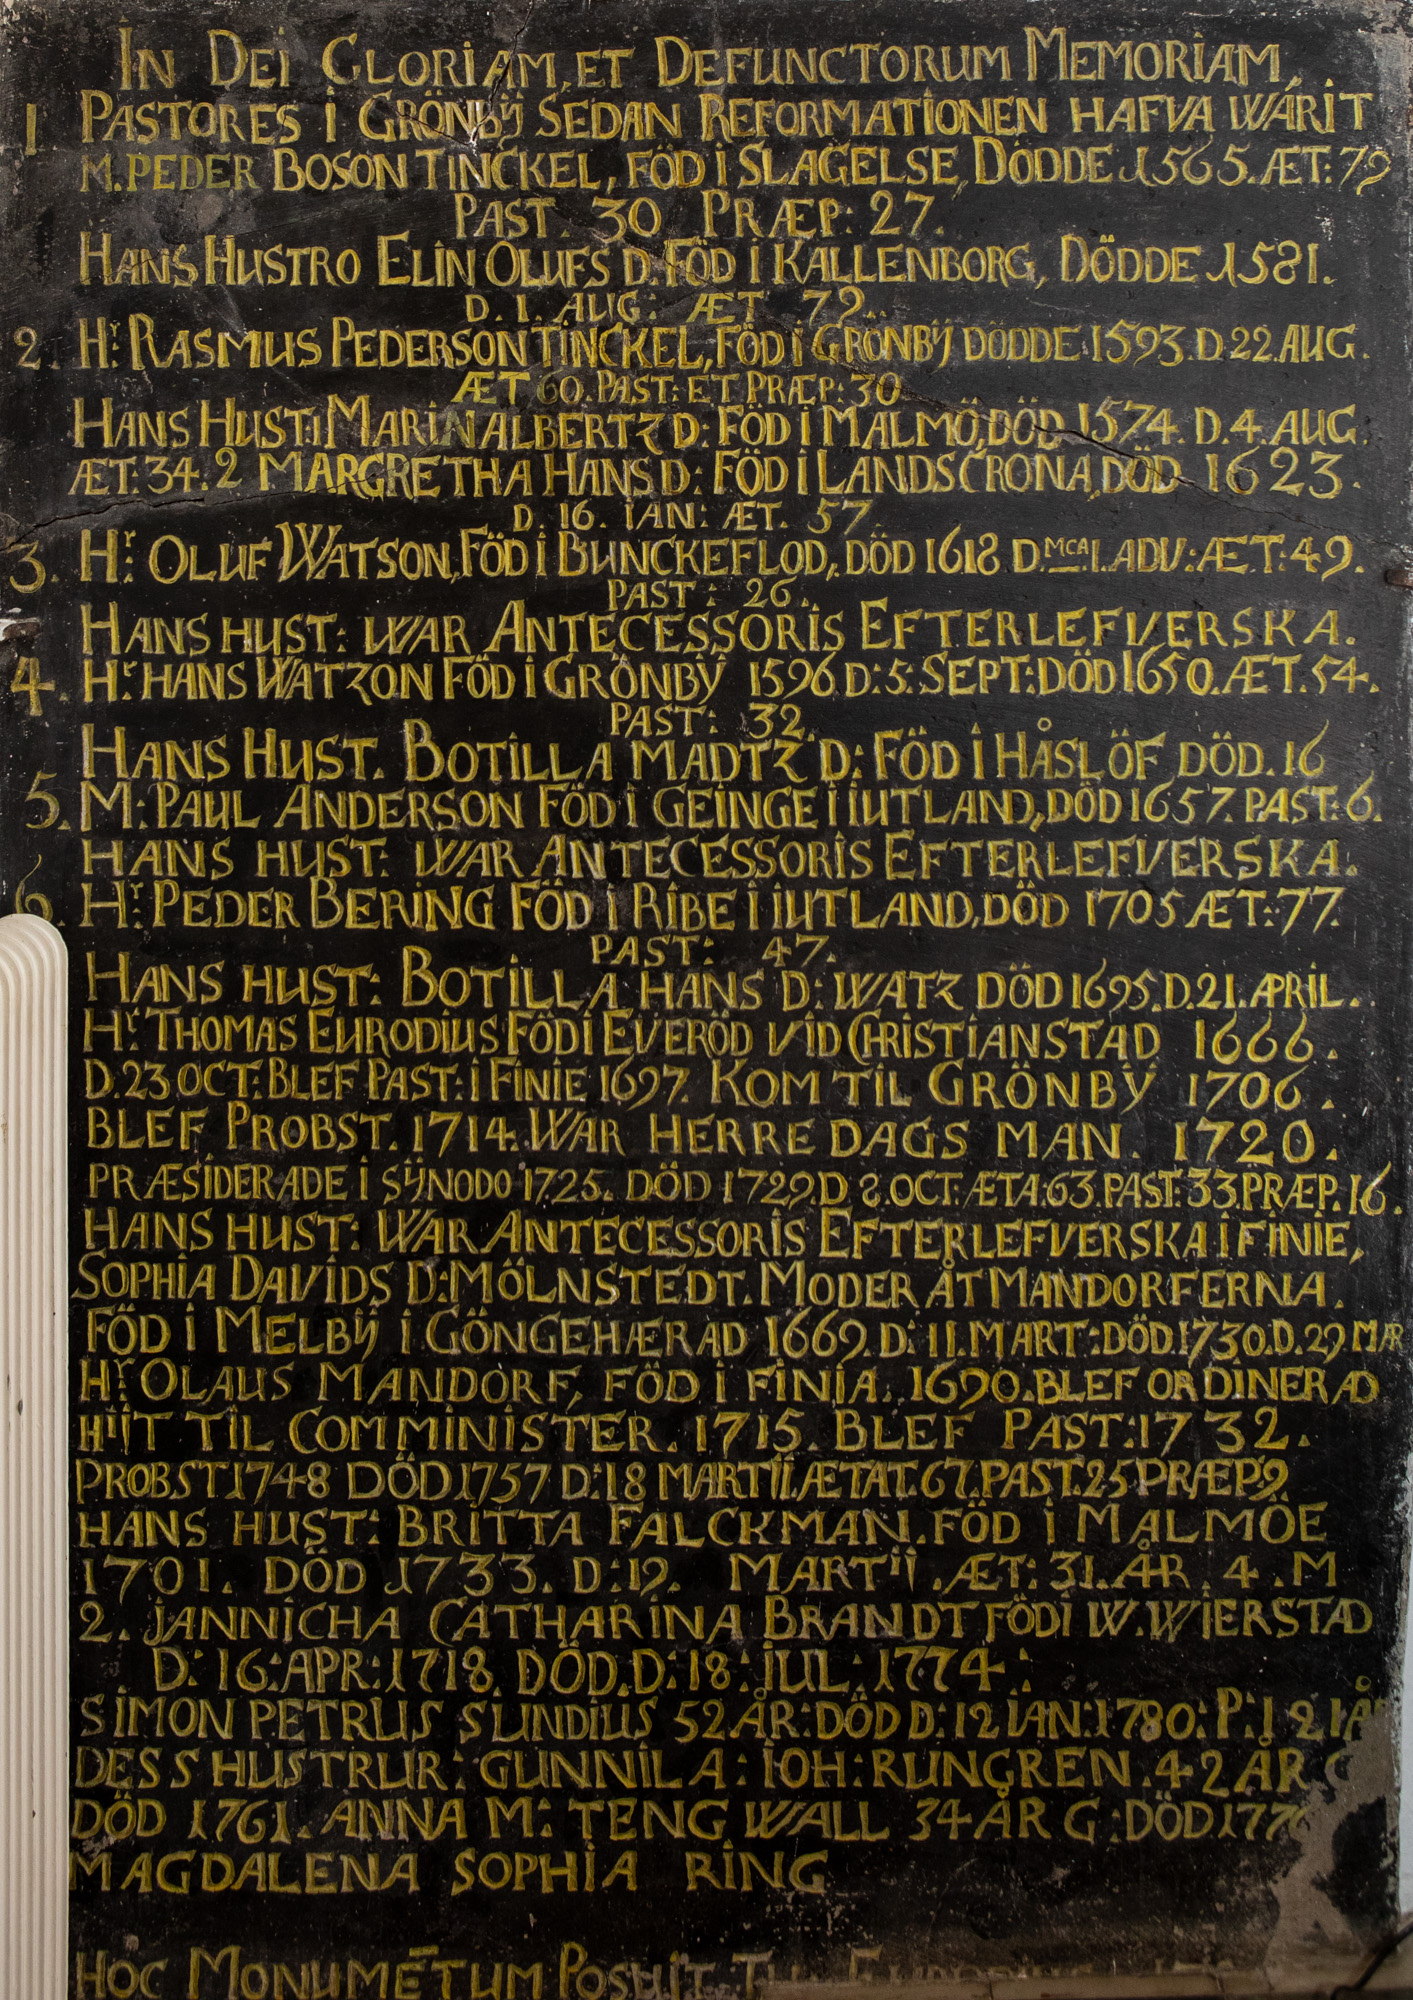 IN DEI GLORIAM, ET DEFUNCTORUM MEMORIAM,
1 PASTORES I GRÖNBŸ SEDAN REFORMATIONEN HAFVA WÁRIT
M. PEDER BOSON TINCKEL, FÖD I SLAGELSE, DÖDDE 1565. ÆT: 79
PAST. 30 PRÆP: 27.
HANS HUSTRO ELIN OLUFS D. FÖD I KALLENBORG, DÖDDE 1581.
D. 1. AUG: ÆT 79.
2. Hr: RASMUS PEDERSON TINCKEL, FÖD I GRÖNBŸ DÖDDE 1593. D. 22. AUG.
ÆT 60. PAST: ET PRÆP: 30
HANS HUST: 1 MARIN ALBERTZ D: FÖD I MALMÖ, DÖD 1574. D. 4. AUG.
ÆT: 34. 2 MARGRETHA HANS D: FÖD I LANDSCRONA, DÖD 1623.
D. 16. IAN: ÆT. 57
3. Hr: OLUF WATSON, FÖD I BUNCKEFLOD, DÖD 1618 D. MCA 1. ADV: ÆT: 49.
PAST: 26.
HANS HUST: WAR ANTECESSORIS EFTERLEFVERSKA.
4. Hr: HANS WATZON FÖD I GRÖNBŸ 1596. D: 5. SEPT: DÖD 1650. ÆT. 54.
PAST: 32.
HANS HUST. BOTILLA MADTZ D: FÖD I HÅSLÖF DÖD. 16
5. M: PAUL ANDERSON FÖD I GEINGE I IUTLAND, DÖD 1657. PAST: 6.
HANS HUST: WAR ANTECESSORIS EFTERLEFVERSKA.
6. Hr: PEDER BERING FÖD I RIBE I IUTLAND, DÖD 1705 ÆT: 77.
PAST: 47.
HANS HUST: BOTILLA HANS D: WATZ DÖD 1695. D. 21. APRIL.
Hr: THOMAS EURODIUS FÖD I EVERÖD VID CHRISTIANSTAD 1666.
D. 23 OCT: BLEF PAST: I FINIE 1697. KOM TIL GRÖNBŸ 1706.
BLEF PROBST. 1714. WAR HERREDAGS MAN. 1720.
PRÆSIDERADE I SŸNODO 1725. DÖD 1729. D 8. OCT: ÆTA: 63. PAST: 33. PRÆP. 16.
HANS HUST: WAR ANTECESSORIS EFTERLEFVERSKA I FINIE,
SOPHIA DAVIDS D: MÖLNSTEDT. MODER ÅT MANDORFERNA.
FÖD I MELBŸ I GÖNGEHÆRAD 1669. D: 11. MART: DÖD. 1730. D. 29 MAR
Hr: OLAUS MANDORF, FÖD I FINIA. 1690. BLEF ORDINERAD
HIJT TIL COMMINISTER. 1715. BLEF PAST: 1732.
PROBST 1748 DÖD 1757 D: 18 MARTII. ÆTAT. 67. PAST. 25 PRÆP: 9
HANS HUST: BRITTA FALCKMAN. FÖD I MALMÖE
1701. DÖD 1733. D: 19. MARTIJ. ÆT: 31. ÅR 4. M
2. JANNICHA CATHARINA BRANDT FÖD I W. WIERSTAD
D: 16: APR: 1718 DÖD. D: 18: IUL: 1774:
SIMON PETRUS SUNDIUS 52 ÅR: DÖD D: 12 IAN: 1780: P: I 21 ÅR
DESS HUSTRUR: GUNNILA: IOH: RUNGREN. 42 ÅR G
DÖD 1761. ANNA M: TENGWALL 34 ÅR G: DÖD
MAGDALENA SOPHIA RING
HOC MONUMĒTUM POSUIT